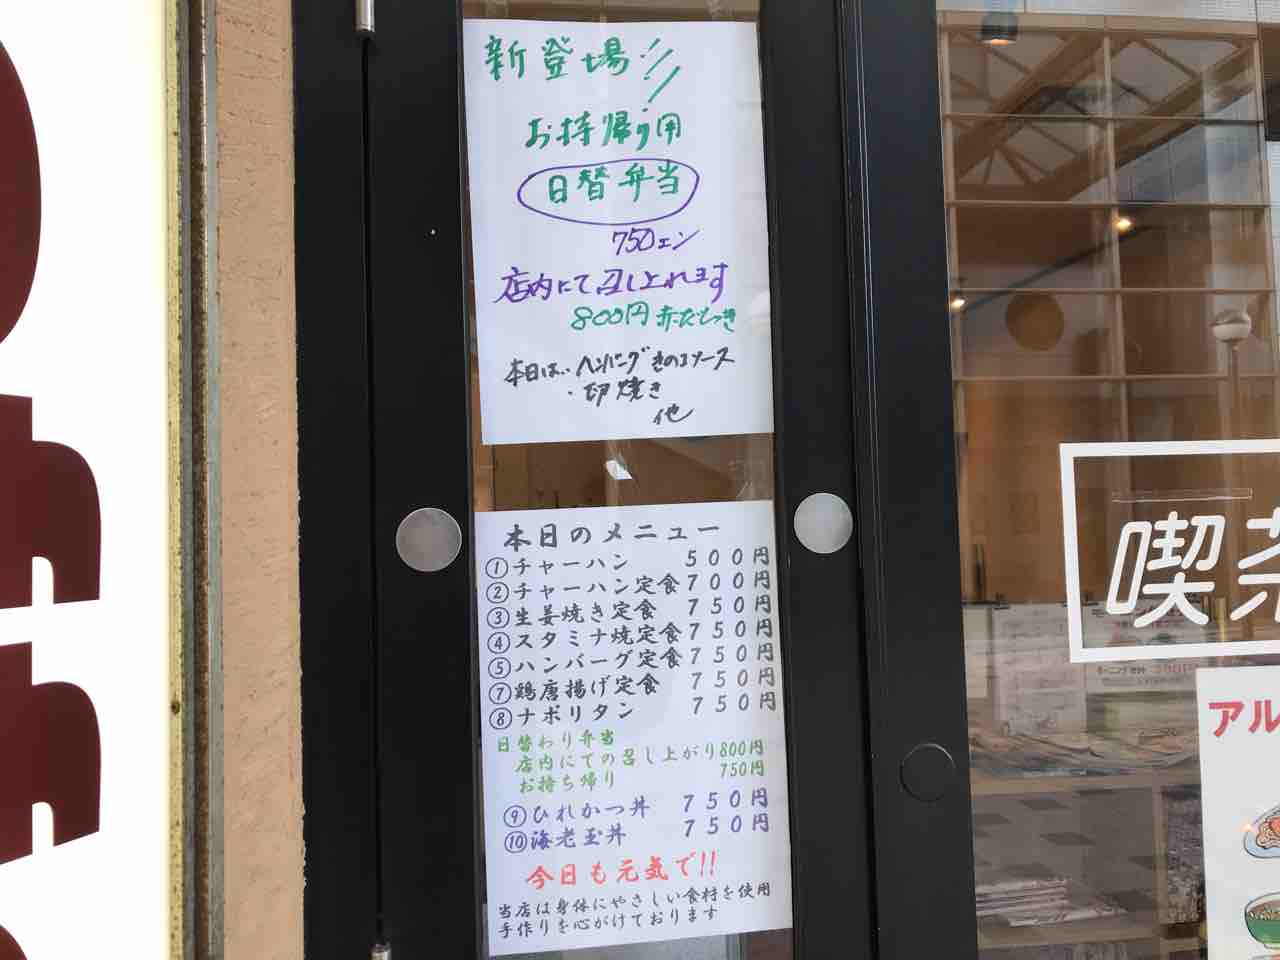 新登場!!!
お持帰り用
日替弁当
750エン
店内にて召し上れます
800円 赤だしつき
本日は・・ハンバーグきのこソース
・卵焼き
他
本日のメニュー
①チャーハン 500円
②チャーハン定食 700円
③生姜焼き定食 750円
④スタミナ焼定食 750円
⑤ハンバーグ定食 750円
⑦鶏唐揚げ定食 750円
⑧ナポリタン 750円
日替わり弁当
店内にての召し上がり800円
お持ち帰り 750円
⑨ひれかつ丼 750円
⑩海老玉丼 750円
今日も元気で!!
当店は身体にやさしい食材を使用
手作りを心がけております
喫茶
アル